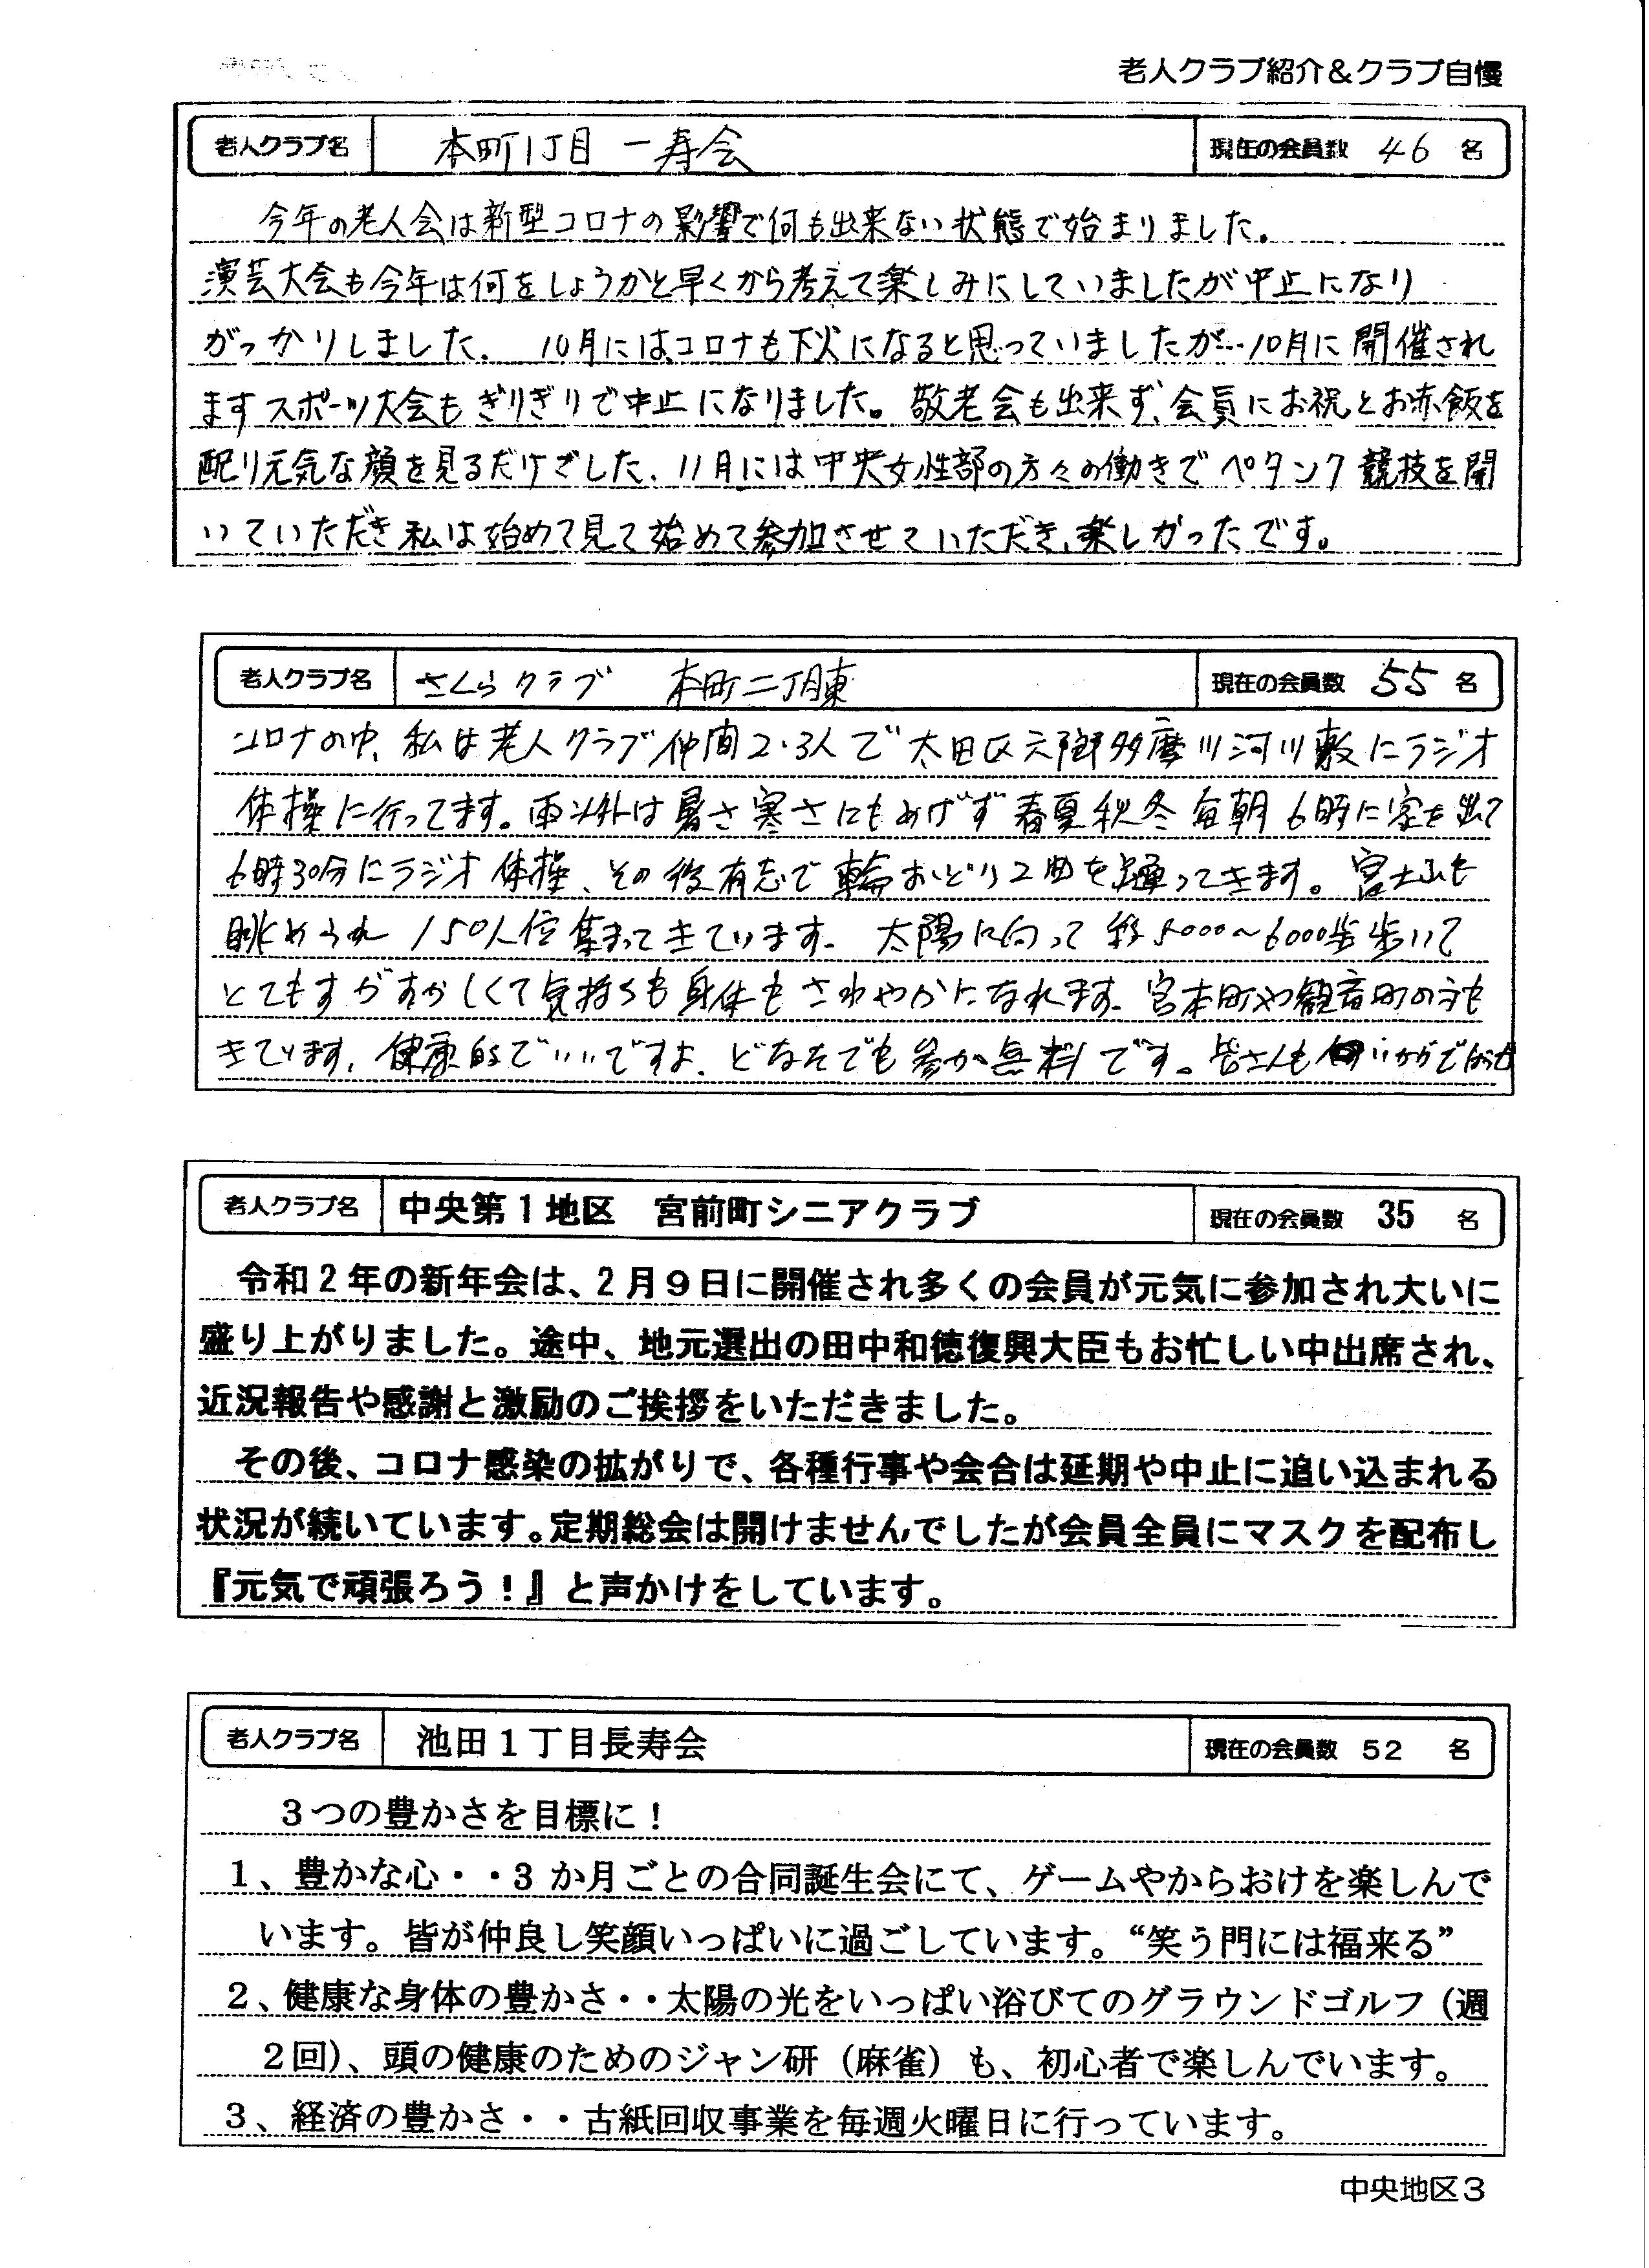 老人クラブ紹介&クラブ自慢
老人クラブ名 本町1丁目 一寿会 現在の会員数 46 名
今年の老人会は新型コロナの影響で何も出来ない状態で始まりました。
演芸大会も今年は何をしょうかと早くから考えて楽しみにしていましたが中止になり
がっかりしました。 10月にはコロナも下火になると思っていましたが…10月に開催され
ますスポーツ大会もぎりぎりで中止になりました。敬老会も出来ず、会員にお祝とお赤飯を
配り元気な顔を見るだけでした、11月には中央女性部の方々の働きでペタンク競技を開
いていただき私は始めて見て始めて参加させていただき、楽しかったです。
老人クラブ名 さくらクラブ 本町二丁目東 現在の会員数 55 名
コロナの中、私は老人クラブ仲間2・3人で太田区六郷多摩川河川敷にラジオ
体操に行ってます。雨以外は暑さ寒さにもめげず春夏秋冬毎朝6時に家を出て
6時30分にラジオ体操、その後有志で輪おどり2曲を踊ってきます。富士山も
眺められ150人位集まってきています。太陽に向って約5000~6000歩歩いて
とてもすがすがしくて気持ちも身体もさわやかになれます。宮本町や観音町の方も
きています、健康的でいいですよ、どなたでも参加無料です。皆さんもいかがで
老人クラブ名 中央第1地区 宮前町シニアクラブ 現在の会員数 35 名
令和2年の新年会は、2月9日に開催され多くの会員が元気に参加され大いに
盛り上がりました。途中、地元選出の田中和徳復興大臣もお忙しい中出席され、
近況報告や感謝と激励のご挨拶をいただきました。
その後、コロナ感染の拡がりで、各種行事や会合は延期や中止に追い込まれる
状況が続いています。定期総会は開けませんでしたが会員全員にマスクを配布し
『元気で頑張ろう！』と声かけをしています。
老人クラブ名 池田1丁目長寿会 現在の会員数 52 名
3つの豊かさを目標に！
1、豊かな心・・3か月ごとの合同誕生会にて、ゲームやからおけを楽しんで
います。皆が仲良し笑顔いっぱいに過ごしています。“笑う門には福来る”
2、健康な身体の豊かさ・・太陽の光をいっぱい浴びてのグラウンドゴルフ（週
2回）、頭の健康のためのジャン研（麻雀）も、初心者で楽しんでいます。
3、経済の豊かさ・・古紙回収事業を毎週火曜日に行っています。
中央地区3